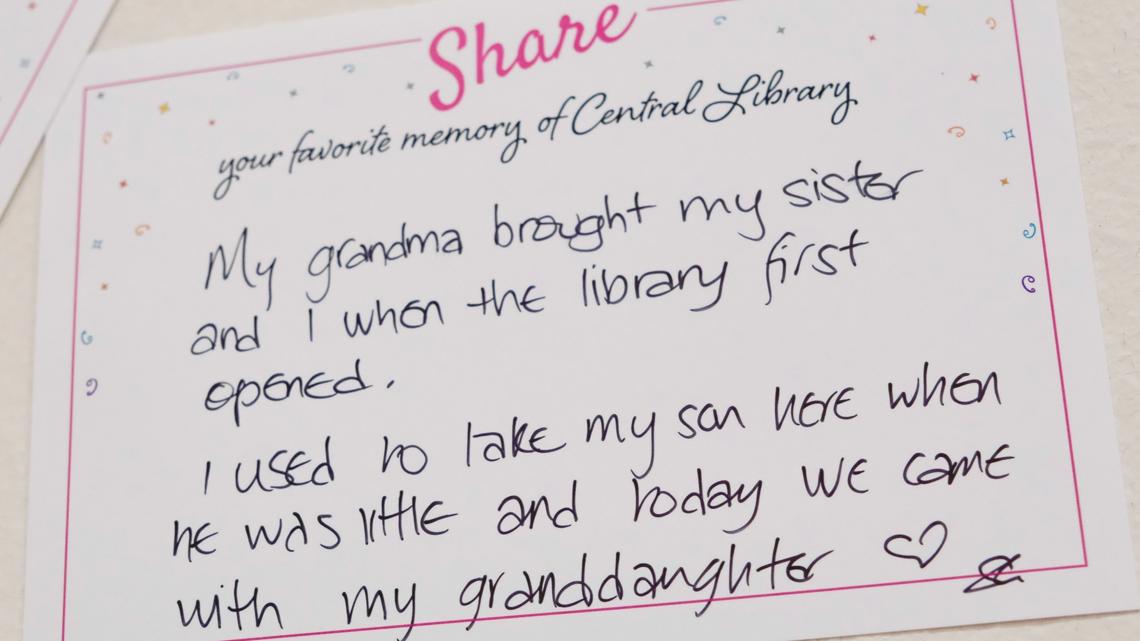 Share
your favorite memory of Central Library
My grandma brought my sister
and I when the library first
opened.
I used to take my son here when
he was little and today we came
with my granddaughter ♡